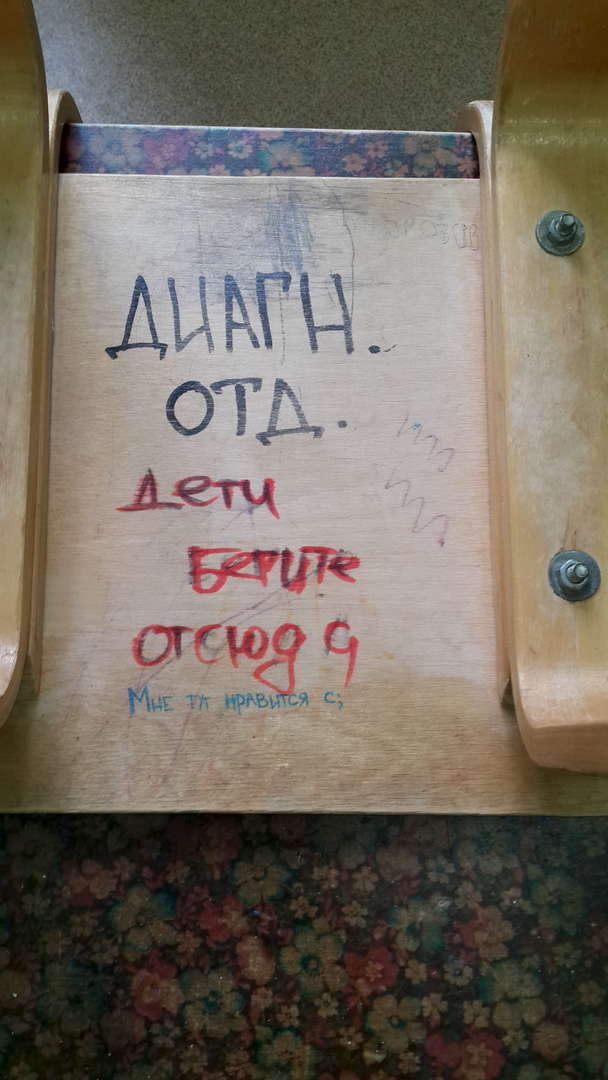 ДИАГН.
ОТД.
Дети
Бегите
отсюда
Мне тут нравится с;